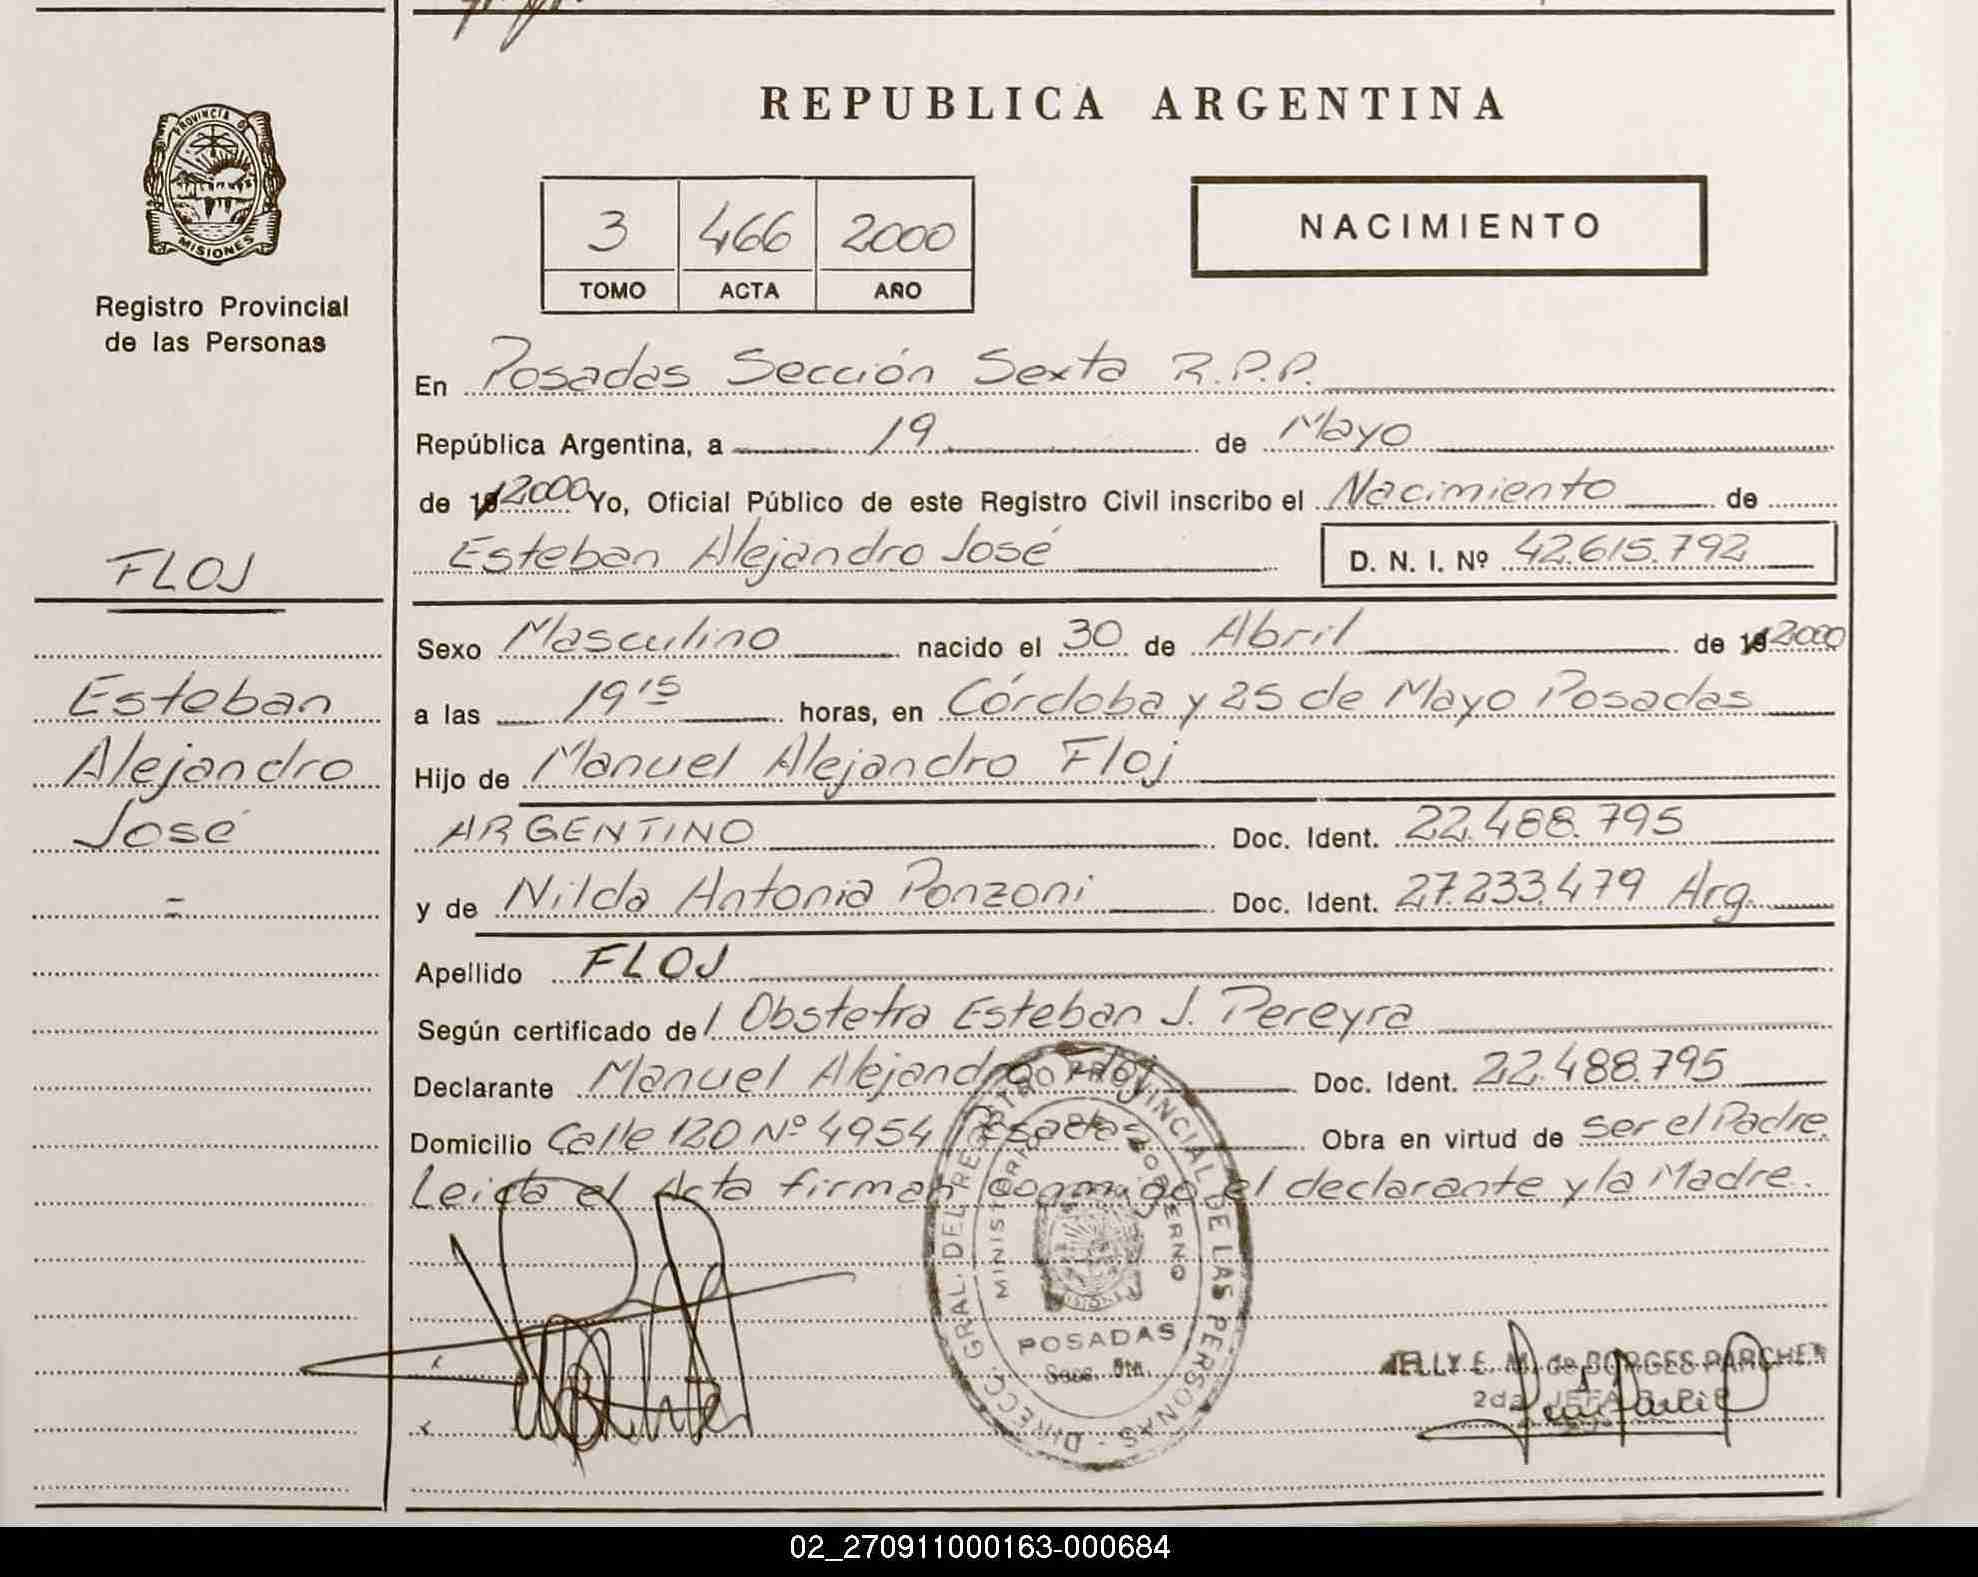 REPUBLICA ARGENTINA
PROVINCIA DE
MISIONES
Registro Provincial
de las Personas
3 466 2000
TOMO ACTA AÑO
NACIMIENTO
En Posadas Sección Sexta R.P.P.
República Argentina, a 19 de Mayo
de 19 2000 Yo, Oficial Público de este Registro Civil inscribo el Nacimiento de
Esteban Alejandro José D. N. I. Nº 42.615.792
FLOJ
Esteban
Alejandro
José
=
Sexo Masculino nacido el 30 de Abril de 19 2000
a las 19 15 horas, en Córdoba y 25 de Mayo Posadas
Hijo de Manuel Alejandro Floj
ARGENTINO Doc. Ident. 22.488.795
y de Nilda Antonia Ponzoni Doc. Ident. 27.233.479 Arg.
Apellido FLOJ
Según certificado de l. Obstetra Esteban J. Pereyra
Declarante Manuel Alejandro Floj Doc. Ident. 22.488.795
Domicilio Calle 120 Nº 4954 Posadas Obra en virtud de ser el Padre
Leida el Acta firman conmigo el declarante y la Madre.
DIRECC. GRAL. DEL REGISTRO PROVINCIAL DE LAS PERSONAS
MINISTERIO DE GOBIERNO
POSADAS
Secc. 6ta.
E. M. de BORGES PARCHER
2da JEFA
02_270911000163-000684